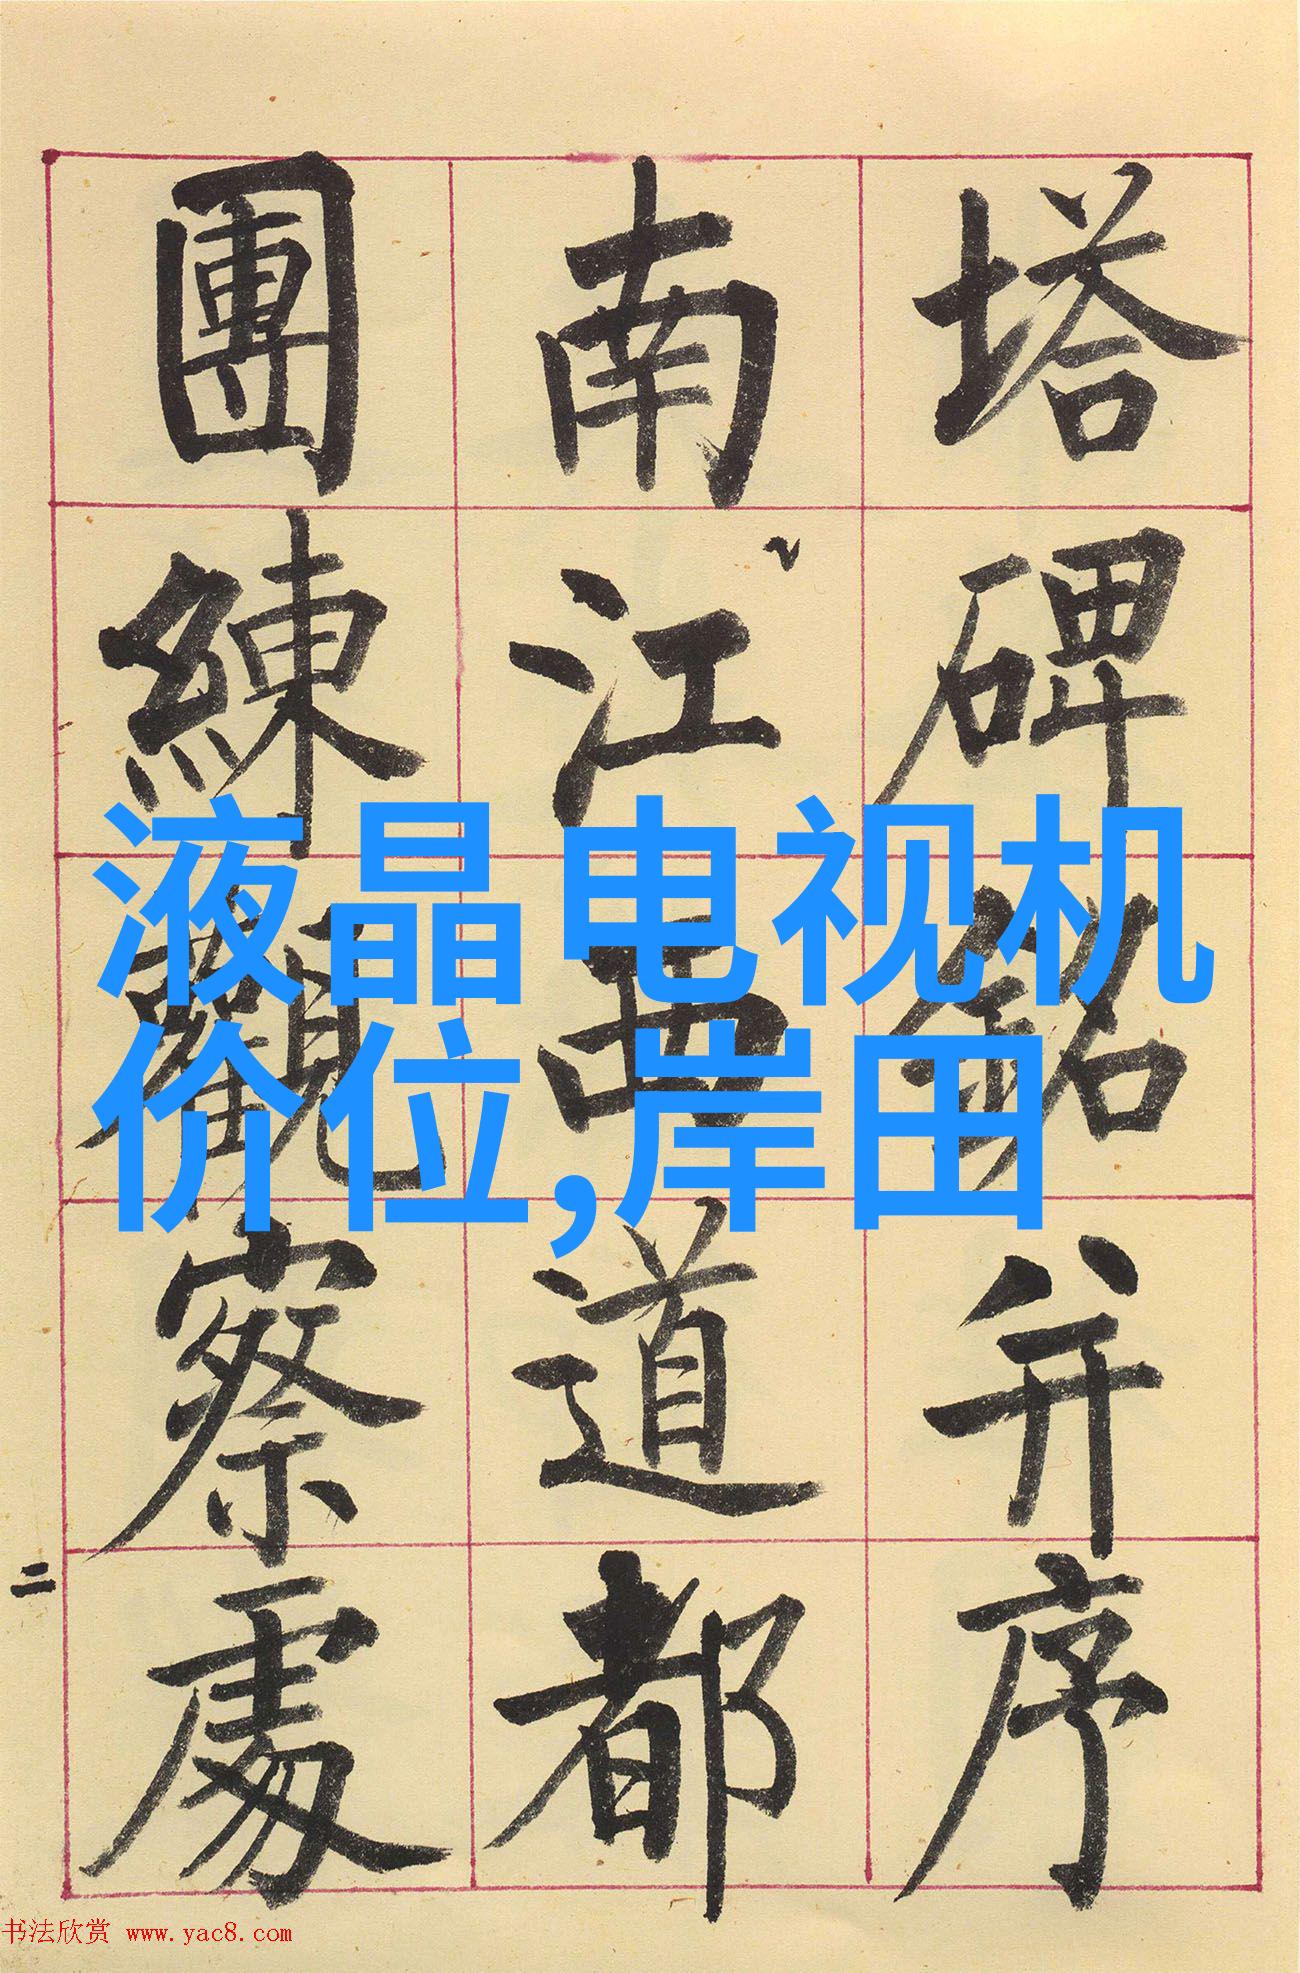 塔碑銘并序
南江西道都
團練觀察處
二
液晶电视机
价位,岸田
书法欣赏 www.yac8.com